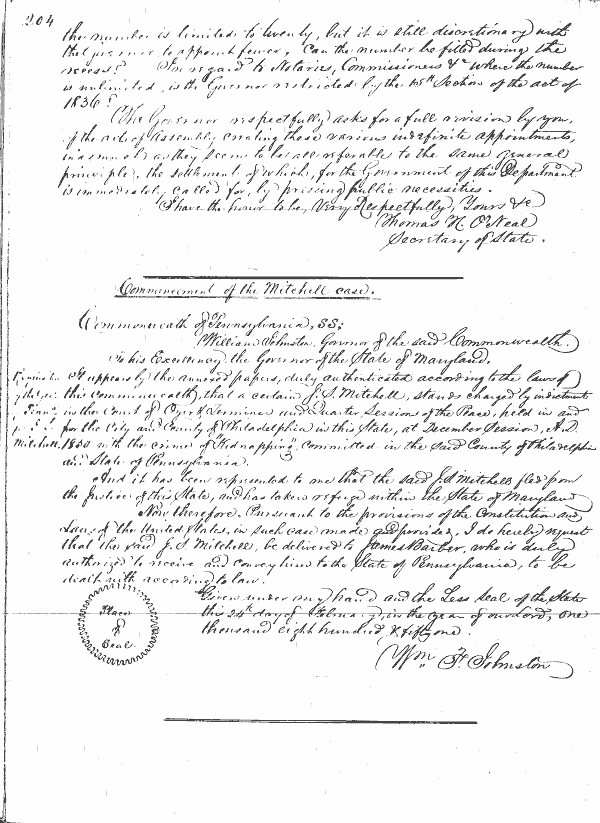 204
the number is limited to twenty, but it is still discretionary with
the Governor to appoint fewer. Can the number be filled during the
recess? In regard to Notaries, Commissioners &c where the number
is unlimited, is the Governor restricted by the 15th Section of the act of
1836?
The Governor respectfully asks for a full revision by you,
of the acts of Assembly creating these various indefinite appointments,
inasmuch as they seem to be all referable to the same general
principle, the settlement of which, for the Government of this Department
is immediately called for, by pressing public necessities.
I have the honor to be, Very Respectfully, Yours &c
Thomas H. O'Neal
Secretary of State.
Commencement of the Mitchell case.
Commonwealth of Pennsylvania, SS;
William Johnston, Governor of the said Commonwealth.
To his Excellency, the Governor of the State of Maryland.
It appears by the annexed papers, duly authenticated according to the laws of
this Commonwealth, that a certain J. S. Mitchell, stands charged by indictment
in the Court of Oyer & Terminer and Quarter Sessions of the Peace, held in and
for the City and County of Philadelphia in this State, at December Session, A.D.
Mitchell. 1850 with the crime of "Kidnapping", committed in the said County of Philadelphia
and State of Pennsylvania.
And it has been represented to me that the said J. S. Mitchell fled from
the Justice of this State, and has taken refuge within the State of Maryland
Now therefore, Pursuant to the provisions of the Constitution and
Laws of the United States, in such case made and provided, I do hereby request
that the said J. S. Mitchell, be delivered to James Barber, who is duly
authorized to receive and convey him to the State of Pennsylvania, to be
dealt with according to law.
Given under my hand and the Less Seal of the State
this 24th day of February, in the year of our Lord, one
thousand eight hundred & fifty one.
Place
of
Seal
Wm F. Johnston